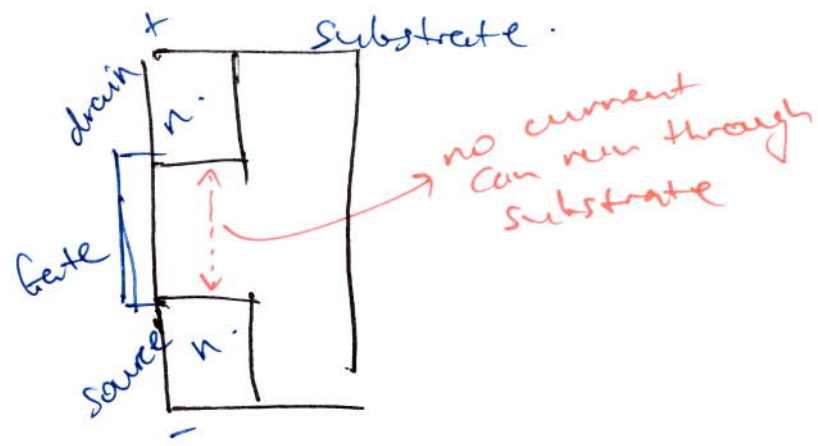 +
substrate.
drain
n.
no current
can run through
substrate
Gate
source
n.
-